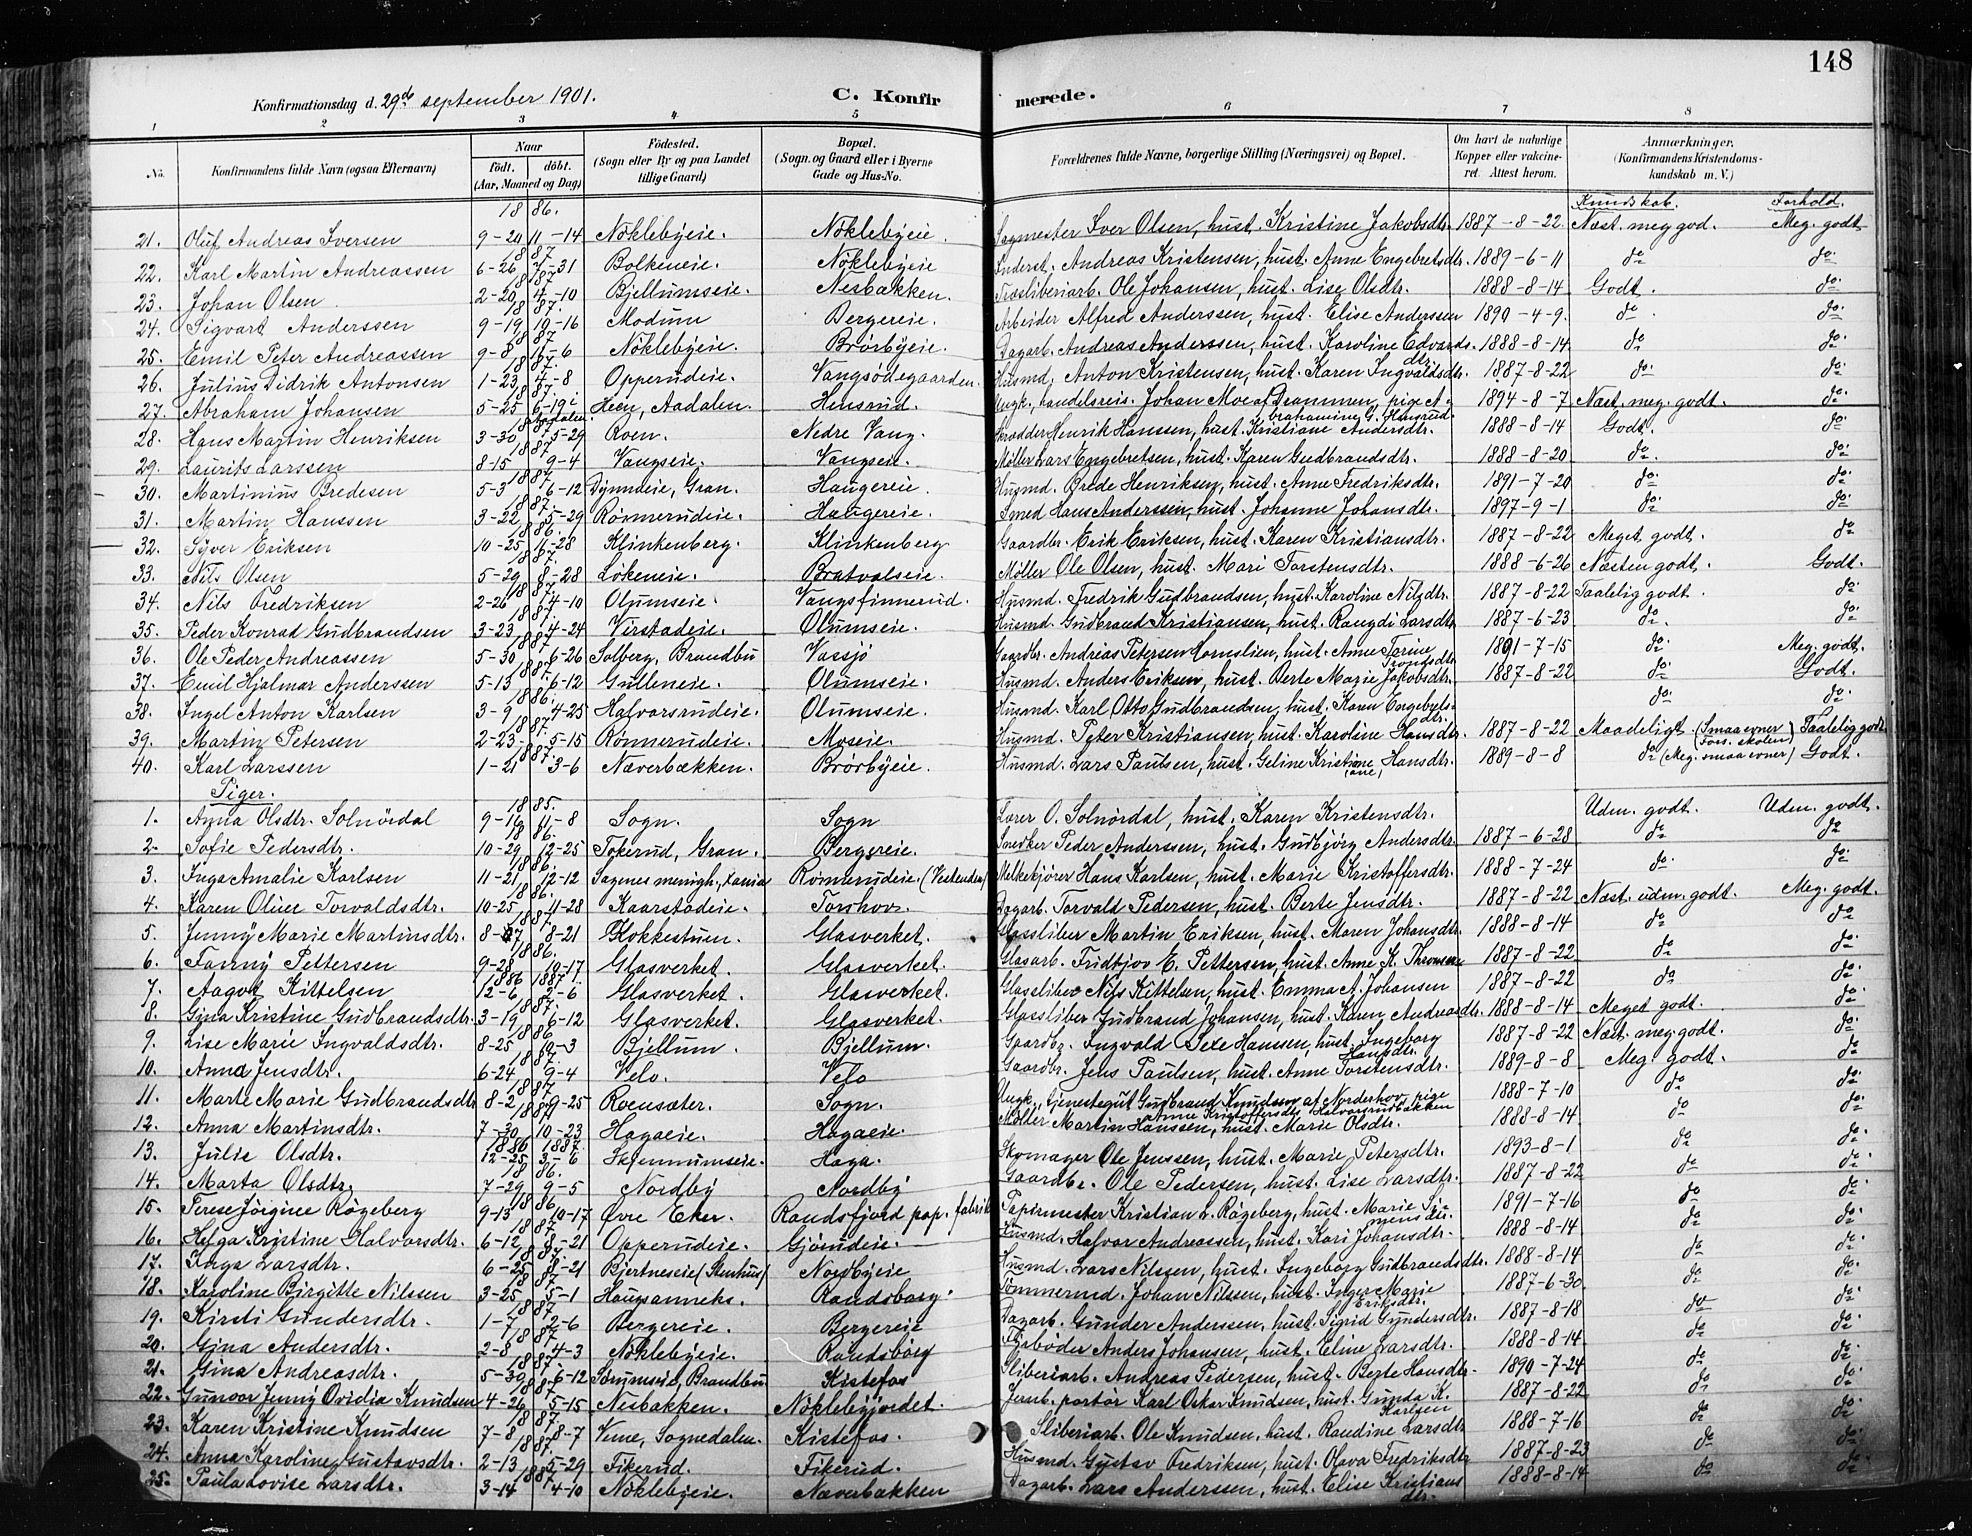 148
Konfirmationsdag d. 29de september 1901.
C. Konfirmerede.
1 2 3 4 5 6 7 8
No. Konfirmandens fulde Navn (ogsaa Efternavn) Naar födt. döbt. (Aar, Maaned og Dag) Födested. (Sogn eller By og paa Landet tillige Gaard) Bopæl. (Sogn og Gaard eller i Byerne Gade og Hus-No. Forældrenes fulde Navne, borgerlige Stilling (Næringsvei) og Bopæl. Om havt de naturlige Kopper eller vaccineret. Attest herom. Anmærkninger. (Konfirmandens Kristendomskundskab m. V.)
Kundskab. Forhold.
1886.
21. Oluf Andreas Iversen 9-20 11-14 Nöklebyeie. Nöklebyeie. Sagmester Iver Olsen, hust. Kristine Jakobsdtr. 1887-8-22 Næst. meg god. Meg. godt
1887
22. Karl Martin Andreassen 6-26 7-31 Bolkeneie. Nöklebyeie Andreas Kristensen, hust. Anne Engebretsdtr. 1889-6-11 do do
1887
23. Johan Olsen 2-20 4-10 Bjellumseie. Nesbakken. Træsliberiarb. Ole Johansen, hust. Lise Olsdtr. 1888-8-14 Godt. do
1887.
24. Sigvart Anderssen 9-19 10-16 Modum Bergereie. Arbeider Alfred Anderssen, hust. Elise Anderssen 1890-4-9. do do
1887
25. Emil Peter Andreassen 9-8 -6 Nöklebyeie. Brörbyeie. Dagarb. Andreas Anderssen, hust. Karoline Edvardsdtr. 1888-8-14 do do
1887.
26. Julius Didrik Antonsen 1-23 4-8 Opperudeie. Vangsödegaarden. Husmd. Anton Kristensen, hust. Karen Ingvaldsdtr. 1887-8-22 do do
1887
27. Abraham Johansen 5-25 6-19 i Aadalen Heen, Aadalen. Hensrud. Ungk., handelsreis. Johan Moe af Drammen, pige Abrahamine G. Hensrud 1894-8-7 Næst. meg. godt. do
1887
28. Hans Martin Henriksen 3-30 5-29 Roen. Nedre Vang. Skrædder Henrik Hanssen, hust. Kristiane Andersdtr. 1888-8-14 Godt. do
1887
29. Laurits Larssen 8-15 9-4 Vangseie. Vangseie. Möller Lars Engebretsen, hust. Karen Gudbrandsdtr. 1888-8-20 do do
1887
30. Martinius Bredesen 5-3 6-12 Dynneeie, Gran. Haugereie. Husmd. Brede Henriksen, hust. Anne Fredriksdtr. 1891-7-20 do do
1887
31. Martin Hanssen 3-22 5-29 Rönnerudeie. Haugereie. Smed Hans Anderssen, hust. Johanne Johansdtr. 1897-9-1 do do
1886.
32. Syver Eriksen 10-25 11-28 Klinkenberg. Klinkenberg Gaardbr. Erik Eriksen, hust. Karen Kristiansdtr. 1887-8-22 Meget godt. do
1887.
33. Nils Olsen 5-29 8-28 Lökeneie. Bratvalseie. Möller Ole Olsen, hust. Mari Torstensdtr. 1888-6-26 Næsten godt. Godt.
1887
34. Nils Fredriksen 2-26 4-10 Olumseie. Vangsfinnerud. Husmd. Fredrik Gudbrandsen, hust. Karoline Nilsdtr. 1887-8-22 Taalelig godt. do
1887
35. Peder Konrad Gudbrandsen 3-23 4-24 Virstadeie. Olumseie. Husmd. Gudbrand Kristiansen, hust. Rangdi Larsdtr. 1887-6-23 do. do
1887
36. Ole Peder Andreassen 5-30 6-26 Solberg, Brandbu Vassjö Gaardbr. Andreas Petersen Cornelien, hust. Anne Trine Trondsdtr. 1891-7-15 do Meg. godt.
1887
37. Emil Hjalmar Anderssen 5-13 6-12 Gulleneie. Olumseie. Husmd. Anders Eriksen, hust. Berte Marie Jakobsdtr. 1887-8-22 do Godt.
1886.
38. Ingel Anton Karlsen 3-9 4-25 Halvorsrudeie. Olumseie. Husmd. Karl Otto Gudbrandsen, hust. Karen Engebretsdtr. do do
1887.
39. Martin Petersen 2-23 5-15 Rönnerudeie. Moseie. Husmd. Peter Kristiansen, hust. Karoline Hansdtr. 1887-8-22 Maadeligt (Smaa evner Fors. skolen) Taalelig godt
1887
40. Karl Larssen 1-21 3-6 Næverbækken. Brörbyeie. Husmd. Lars Paulsen, hust. Geline Kristine (ane) Hansdtr. 1889-8-8 do (Meg. smaa evner) Godt.
Piger.
1885.
1. Anna Olsdtr. Solnördal 9-16 11-8 Sogn. Sogn Lærer O. Solnördal, hust. Karen Kristensdtr. Udm. godt. Udm. godt.
1886.
2. Sofie Pedersdtr. 10-29 12-25 Tokerud, Gran. Bergereie. Snedker Peder Anderssen, hust. Gudbjörg Andersdtr. 1887-6-28 do do
1886.
3. Inga Amalie Karlsen 11-21 12-12 Sagenes menigh., Xania Rönnerudeie. (Vestenden) Melkekjörer Hans Karlsen, hust. Marie Kristoffersdtr. 1888-7-24 do do
1886.
4. Karen Oline Torvaldsdtr. 10-25 11-28 Kaarstadeie. Torshov. Dagarb. Torvald Pedersen, hust. Berte Jensdtr. 1887-8-22 Næst. udm. godt. Meg. godt.
1887
5. Jenny Marie Martinsdtr. 8-7 8-21 Klokkestuen. Glasverket. Glassliber Martin Eriksen, hust. Maren Johansdtr. 1888-8-14 do do
1886.
6. Fanny Pettersen 9-28 10-17 Glasverket. Glasverket. Glasarb. Fridtjov E. Pettersen, hust. Anne K. Thronsen 1887-8-22 do do
1886 1887.
7. Aagot Kittelsen 12-6 2-6 Glasverket. Glasverket. Glassliber Nils Kittelsen, hust. Emma A. Johansen 1887-8-22 do do
1887.
8. Gina Kristine Gudbrandsdtr. 3-19 6-12 Glasverket. Glasverket. Glassliber Gudbrand Johansen, hust. Karen Andreasdtr. 1888-8-14 Meget godt. do
1886
9. Lise Marie Ingvaldsdtr. 8-25 10-3 Bjellum. Bjellum. Gaardbr. Ingvald Sexe Hanssen, hust. Ingeborg Hansdtr. 1887-8-22 Næst. meg. godt. do
1887.
10. Anna Jensdtr. 6-24 9-4 Velo. Velo Gaardbr. Jens Paulsen, hust. Anne Torstensdtr. 1889-8-8 Meg. godt. do
1887
11. Marte Marie Gudbrandsdtr 8-2 9-25 Roensæter. Sogn. Ungk., tjenestegut Gudbrand Knudsen af Norderhov, pige Anne Kristoffersdtr. Halvorsrudbakken 1888-7-10 do do
1887
12. Anna Martinsdtr. 7-30 10-23 Hagaeie. Hagaeie. Möller Martin Hanssen, hust. Marie Olsdtr. 1888-8-14 do do
1886 1887
13. Julie Olsdtr. 12-25 3-6 Skjennumseie. Haga. Skomager Ole Jenssen, hust. Marie Petersdtr. 1893-8-1 do do
1886.
14. Marta Olsdtr. 7-29 9-5 Nordby Nordby Gaardbr. Ole Pedersen, hust. Lise Larsdtr. 1887-8-22 do do
1886
15. Terese Jörgine Rögeberg 9-13 10-17 Övre Eker. Randsfjord pap. fabrik Papirmester Kristian L. Rögeberg, hust. Marie Simensdtr. 1891-7-16 do do
1887
16. Helga Kristine Halvorsdtr. 6-12 8-21 Opperudeie. Gjöendeie. Husmd. Halvor Andreassen, hust. Kari Johansdtr. 1888-8-14 do do
1887.
17. Inga Larsdtr. 6-25 8-21 Bjertneseie (Stenhus) Nordbyeie Husmd. Lars Nilssen, hust. Ingeborg Gudbrandsdtr. 1888-8-14 do do
1887
18. Karoline Birgitte Nilssen 3-25 5-1 Haugsanneks. Randsborg. Tömmermd. Johan Nilssen, hust. Inger Marie Eriksdtr. 1887-6-30 do do
1887
19. Kirsti Gundersdtr. 1-7 2-6 Bergereie. Bergereie Dagarb. Gunder Anderssen, hust. Sigrid Gundersdtr. 1887-8-18 do do
1887.
20. Gina Andersdtr. 2-8 4-3 Nöklebyeie. Randsborg Anders Johansen, hust. Eline Larsdtr. 1888-8-14 do do
1887
21. Gina Andreasdtr. 5-30 6-12 Sörumseie, Brandbu Kistefos Sliberiarb. Andreas Pedersen, hust. Berte Hansdtr. 1890-7-24 do do
1887.
22. Gunvor Jenny Ovidia Knudsen 4-26 5-15 Nesbakken. Nöklebyjordet. Jernb. portör Karl Oskar Knudsen, hust. Gunda K. Karlsen 1887-8-22 do do
1887.
23. Karen Kristine Knudsen 7-8 8-7 Veme, Sognedalen. Kistefos. Sliberiarb. Ole Knudsen, hust. Randine Larsdtr 1888-7-16 do do
1887.
24. Anna Karoline Gustavsdtr. 2-13 5-29 Fikerud. Fikerud. Husmd. Gustav Fredriksen, hust. Olava Fredriksdtr 1887-8-23 do do
1887
25. Paula Lovise Larsdtr. 3-14 4-10 Nöklebyeie. Næverbakken Dagarb. Lars Anderssen, hust. Elise Kristiansdtr. 1888-8-14 do do